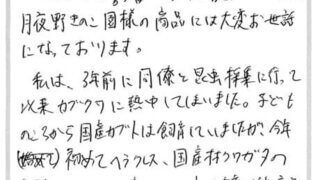 月夜野きのこ園様の商品には大変お世話
になっております。
私は、3年前に同僚と昆虫採集に行って
以来カブクワに熱中してしまいました。子ども
のころから国産カブトは飼育していましたが、今年
初めてヘラクレス、国産オオクワガタの